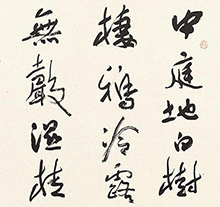 中庭地白樹
棲鴉冷露
無聲濕桂